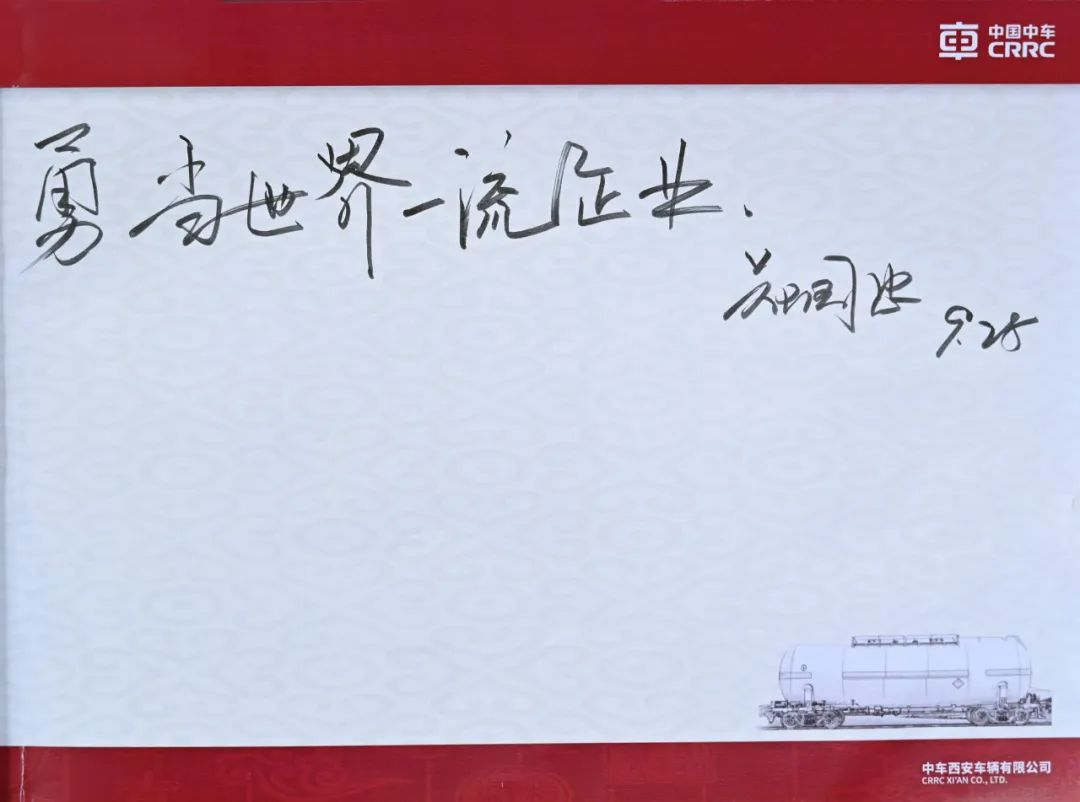 中国中车
CRRC
勇当世界一流企业.
9.25
中车西安车辆有限公司
CRRC XI'AN CO., LTD.